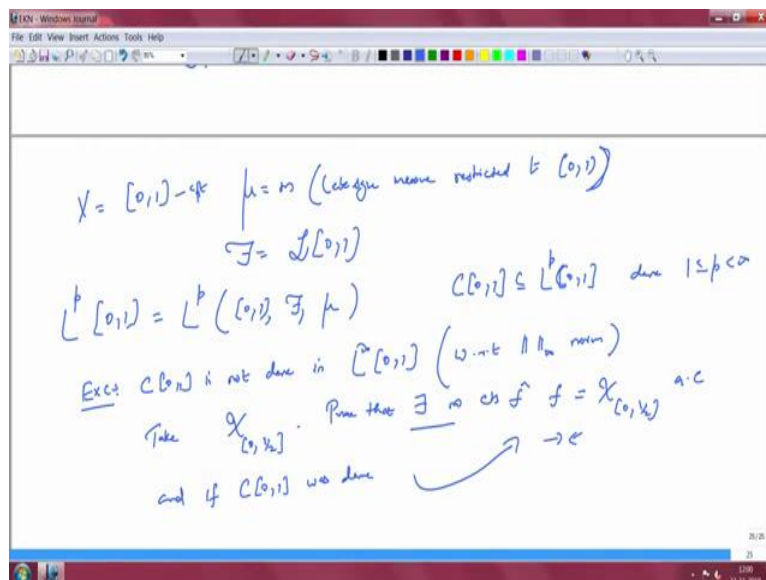 EKN - Windows Journal
File Edit View Insert Actions Tools Help
X = [0,1] - cpt μ = m (Lebesgue measure restricted to [0,1])
F = L[0,1]
L^p[0,1] = L^p([0,1], F, μ) C[0,1] ⊆ L^p[0,1] dense 1 ≤ p < ∞
Exc: C[0,1] is not dense in L^∞[0,1] (w.r.t ‖ ‖_∞ norm)
Take χ_[0,1/2] . Prove that ∃ no cts fn f = χ_[0,1/2] a.e
and if C[0,1] was dense →←
25/25
25
12:00